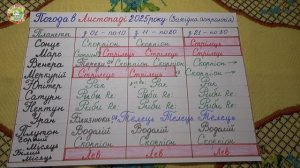 Погода в Листопаді 2025 року (Західна астрологія)
Планети з 01 - по 10 з 11 - по 20 з 21 - по 30
Сонце Скорпіон Скорпіон Стрілець
Марс Стрілець Стрілець Стрілець
Венера Терези Скорпіон Скорпіон Скорпіон
Меркурій Стрілець Стрілець Скорпіон
Юпітер Рак Рак Рак
Сатурн Риби Re. Риби Re. Риби Re.
Нептун Риби Re. Риби Re. Риби Re.
Уран Близнюки Телець Телець Телець
Плутон Водолій Водолій Водолій
Чорний Місяць Скорпіон Скорпіон Скорпіон
Білий Місяць Лев Лев Лев